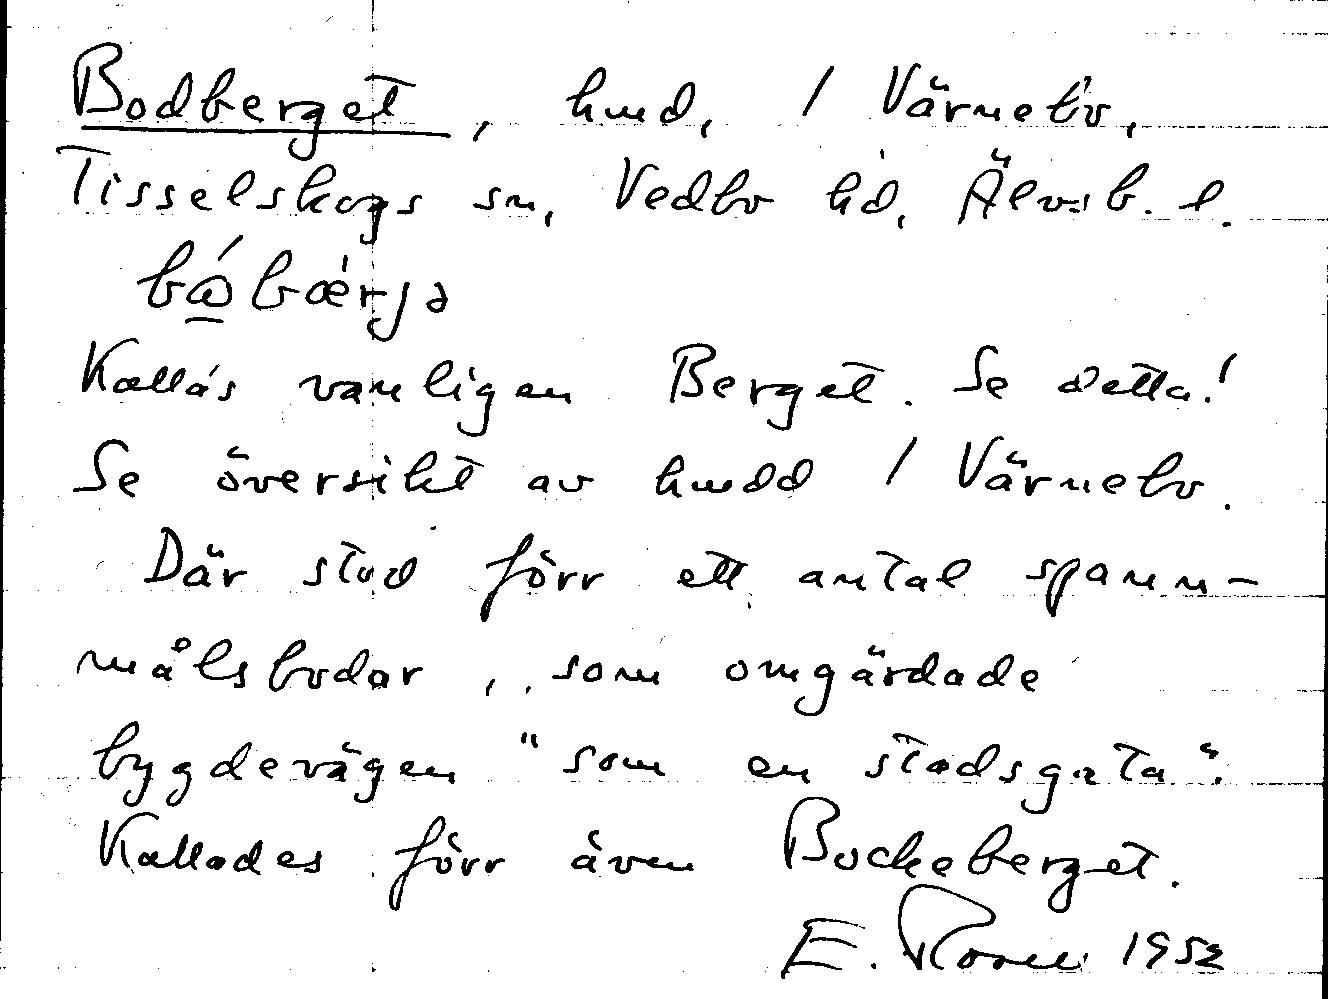 Bodberget, hmd, / Värnebo,
Tisselskogs sn, Vedbo hd, Älvsb. l.
Kallas vanligen Berget. Se detta!
Se översikt av hmdd / Värnebo.
Där stod förr ett antal spann-
målsbodar, som omgärdade
bygdevägen "som en stadsgata".
Kallades förr även Bockeberget.
E. Rosell 1952